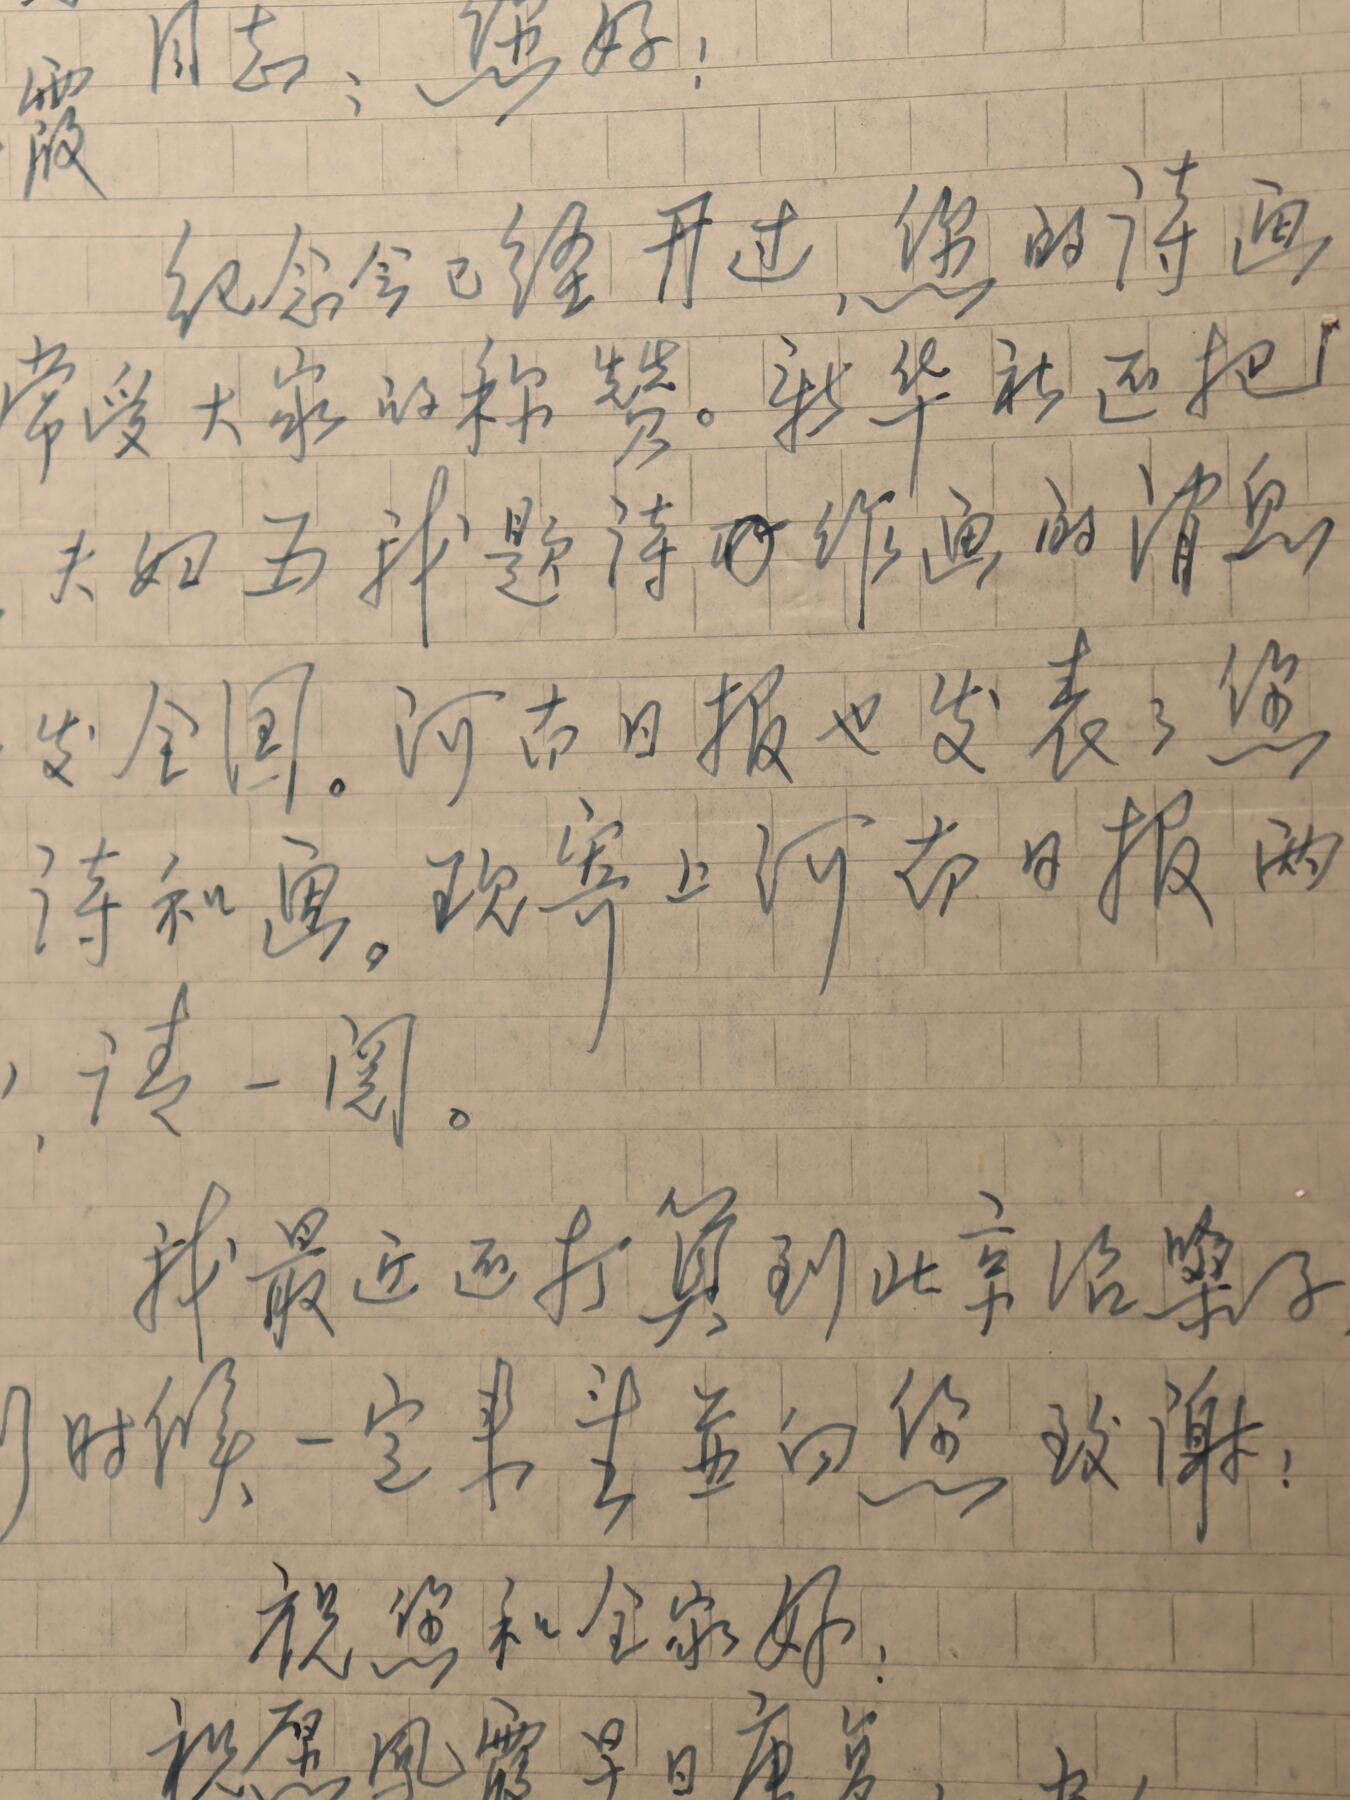 同志:您好!
霞
纪念会已经开过,您的诗画
常受大家的称赞。新华社还把
夫妇五我题诗作画的消息
发全国。河南日报也发表了您
诗和画。现寄上河南日报两
,请一阅。
我最近还打算到北京治
时候一定来看並向您致谢!
祝您和全家好!
祝愿凤霞早日康复,